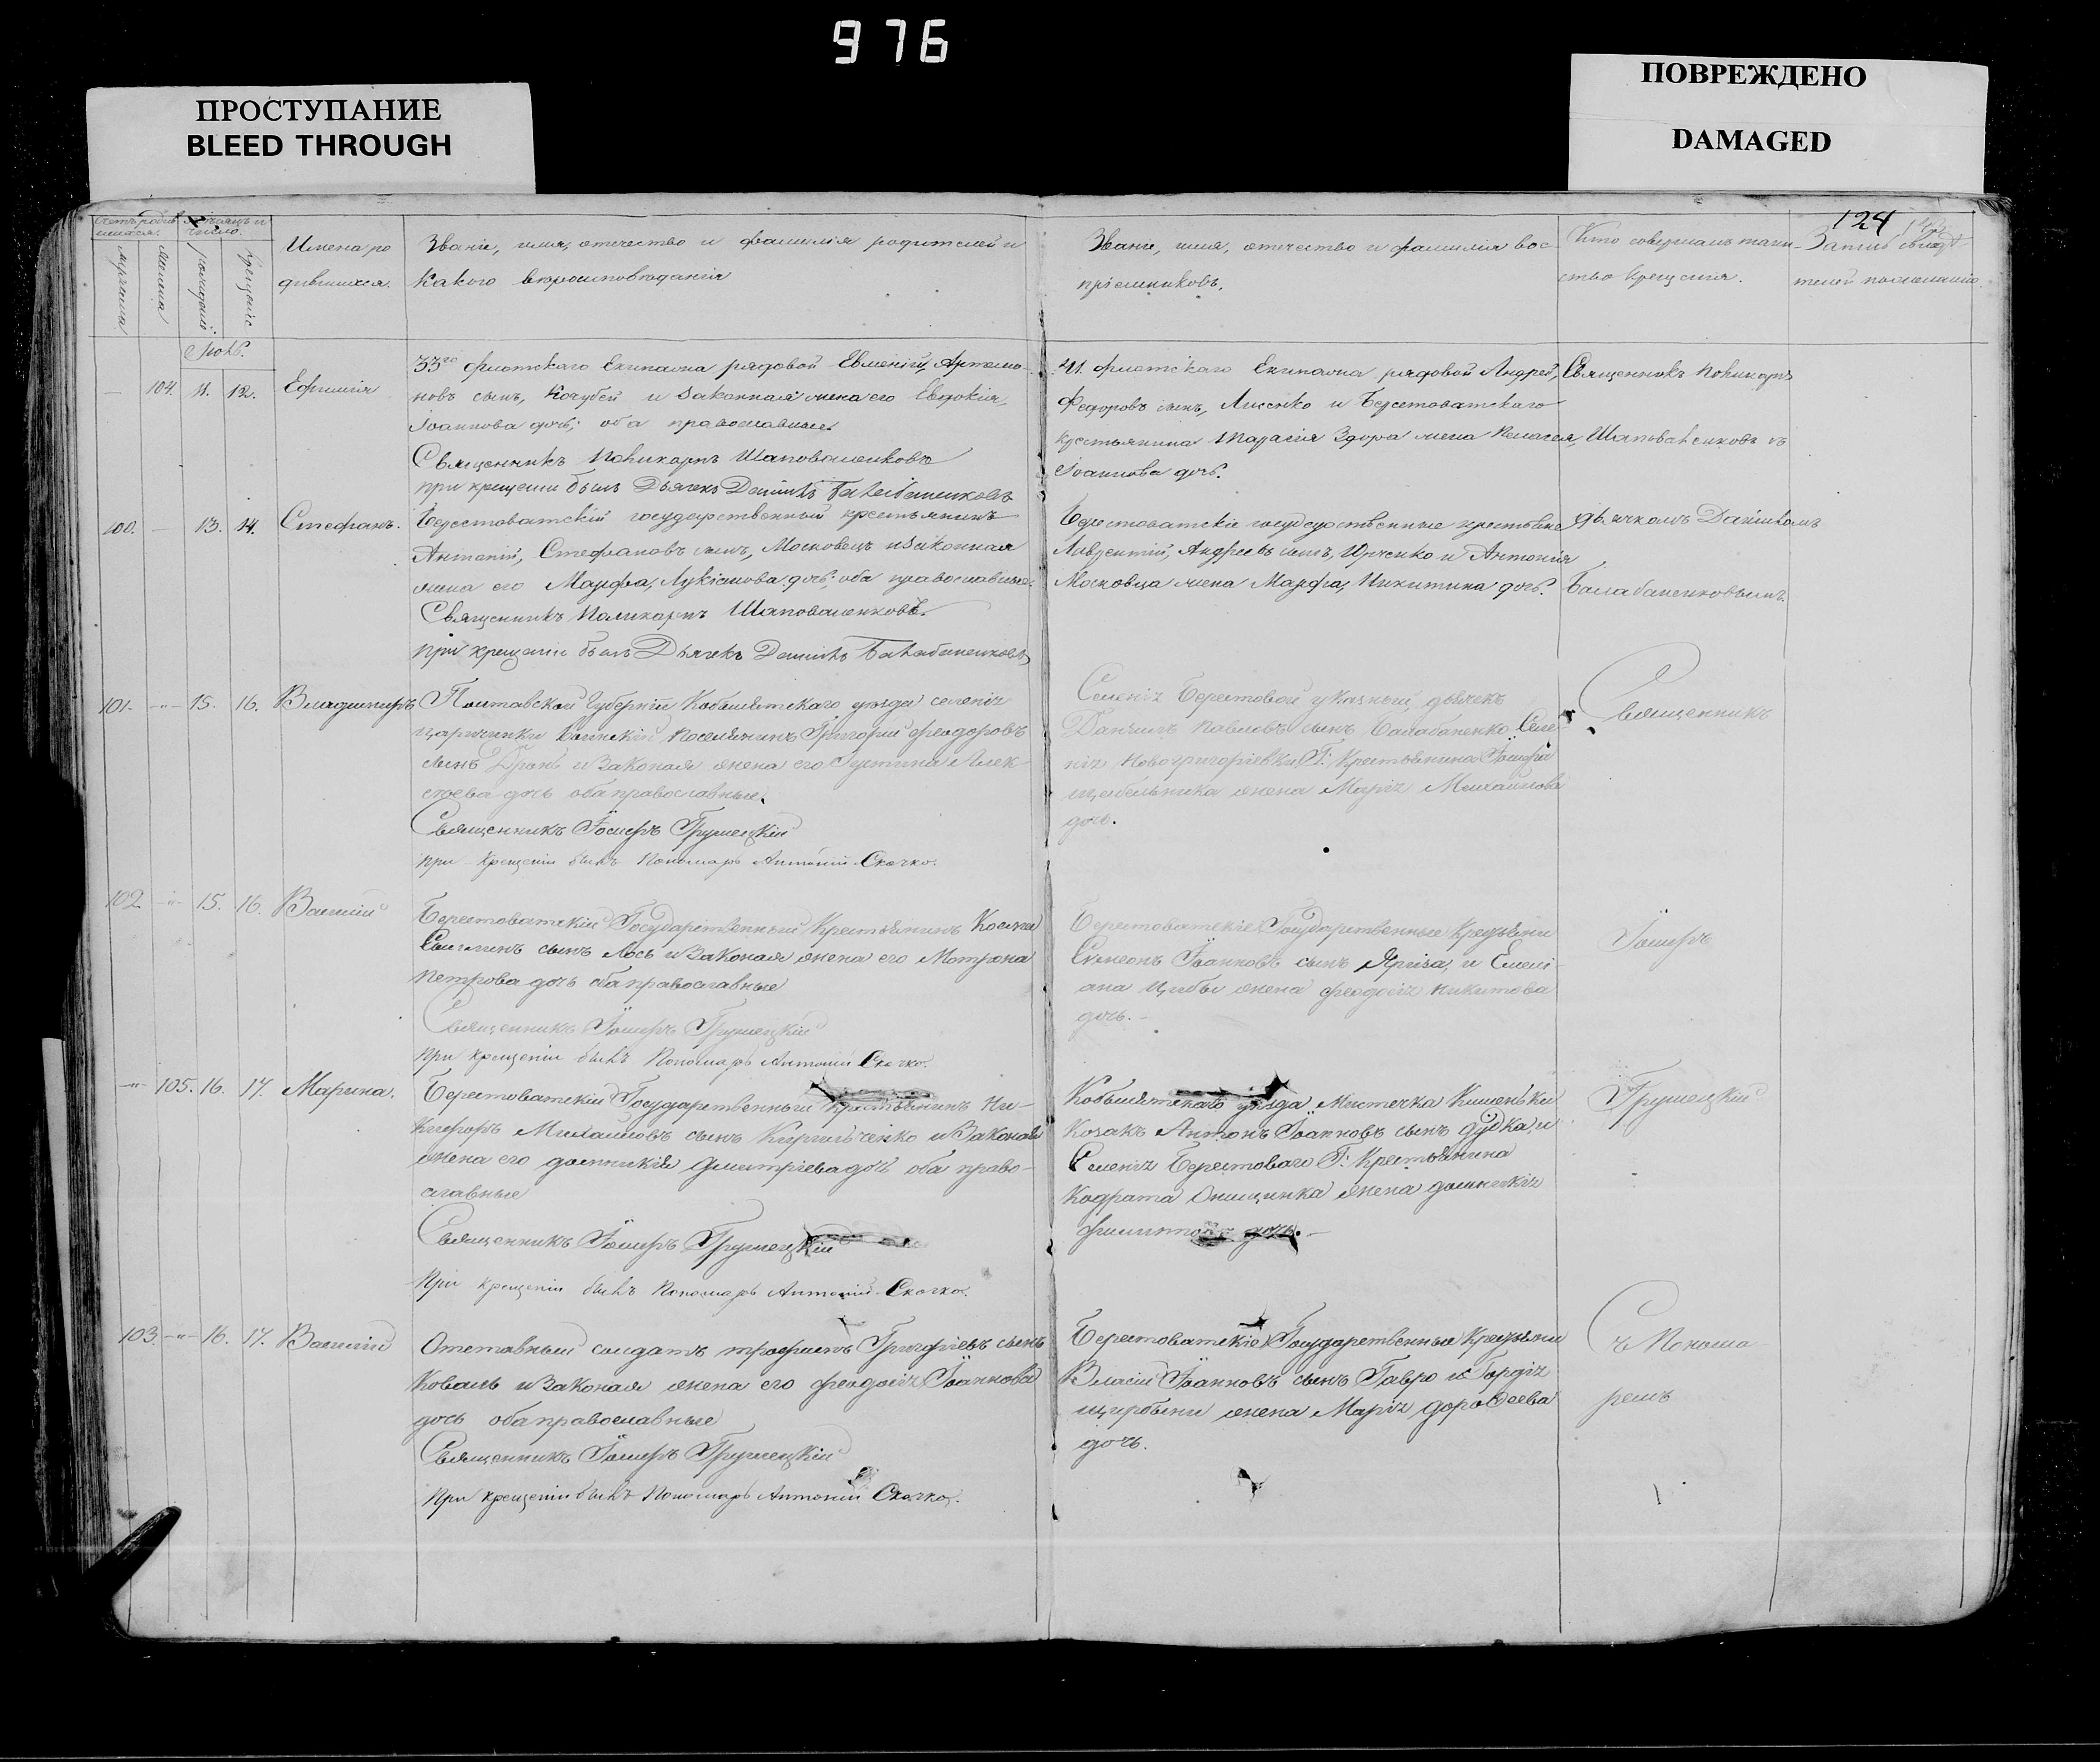 976
ПРОСТУПАНИЕ
BLEED THROUGH
ПОВРЕЖДЕНО
DAMAGED
124
Имена ро
дившихся.
Званіе, имя, отечество и фамилія родителей и
какого вѣроисповѣданія
Званіе, имя, отечество и фамилія вос-
пріемниковъ.
Кто совершалъ таин-
ство крещенія.
телей по желанію.
мужеска
женска
рожденія
крещенія
Іюнь.
— 104. 11. 12. Ефимія
33го флотскаго Екипажа рядовой Евменій, Артемо-
новъ сынъ, Кочубей и законная жена его Евдокія,
Іоаннова дочь; оба православные
Священникъ Поликарпъ Шаповаленковъ
при крещеніи былъ Дьячекъ Даніилъ Балабаненковъ
41. флотскаго Екипажа рядовой Андрей,
Федоровъ сынъ, Лисенко и Берестоватскаго
крестьянина Тарасія Здора жена Пелагея,
Іоаннова дочь.
Священникъ Поликарпъ
Шаповаленковъ съ
100. — 13. 14. Стефанъ.
Берестоватскій государственный крестьянинъ
Антоній, Стефановъ сынъ, Московецъ и законная
жена его Марфа, Лукіянова дочь; оба православные.
Священникъ Поликарпъ Шаповаленковъ.
при крещеніи былъ Дьячекъ Даніилъ Балабаненковъ
Берестоватскіе государственные крестьяне
Лаврентій, Андреевъ сынъ, Юрченко и Антонія
Московца жена Марфа, Никитина дочь.
дьячкомъ Даніиломъ
Балабаненковымъ.
101. -"- 15. 16. Владимиръ
Полтавской Губерніи Кобылятскаго уѣзда селенія
Царичинки Воинскій поселянинъ Григорій Феодоровъ
сынъ Дронь и Законая жена его Іустина Алек-
сѣева дочь оба православные.
Священникъ Іосифъ Грушецкій
при крещеніи былъ Пономарь Антоній Скачко.
Селенія Берестовой указный дьячекъ
Даніилъ Павловъ сынъ Балабаненко. Селе-
нія Новогригоріевки, Г: Крестьянина Іосифа
жена Марія Михайлова
дочь.
Священникъ
102 -"- 15. 16. Василій
Берестоватскій Государственный Крестьянинъ Косма
сынъ Лось и Законая жена его Матрона
Петрова дочь оба православные
Священникъ Іосифъ Грушецкій
при крещеніи былъ Пономарь Антоній Скачко.
Берестоватскіе Государственные Крестьяни
Симеонъ Іоанновъ сынъ и Емелі-
ана Цибы жена Феодосія Никитова
дочь.-
Іосифъ
-"- 105. 16. 17. Марина.
Берестоватскій Государственный Крестьянинъ Ни-
кифоръ Михайловъ сынъ Кирильченко и Законая
жена его Домникія Дмитріева дочь оба право-
славные
Священникъ Іосифъ Грушецкій
При крещеніи былъ Пономарь Антоній Скачко.
Кобыляткаго уѣзда Мистечка Кишеньки
Козакъ Антонъ Іоанновъ сынъ Дудка, и
Селенія Берестоваго Г: Крестьянина
Кодрата Онищинка жена Домникія
дочь.-
Грушецкій
103 -"- 16. 17. Василій
Отставный солдатъ Трофимъ Григоріевъ сынъ
Коваль и Законая жена его Феодосія Іоаннова
дочь оба православные
Священникъ Іосифъ Грушецкій
При крещеніи былъ Пономарь Антоній Скачко.
Берестоватскіе Государственые Крестьяни
Власій Іоанновъ сынъ Гавро и Гордія
Щербини жена Марія Дорофеева
дочь.
съ Понома
ремъ